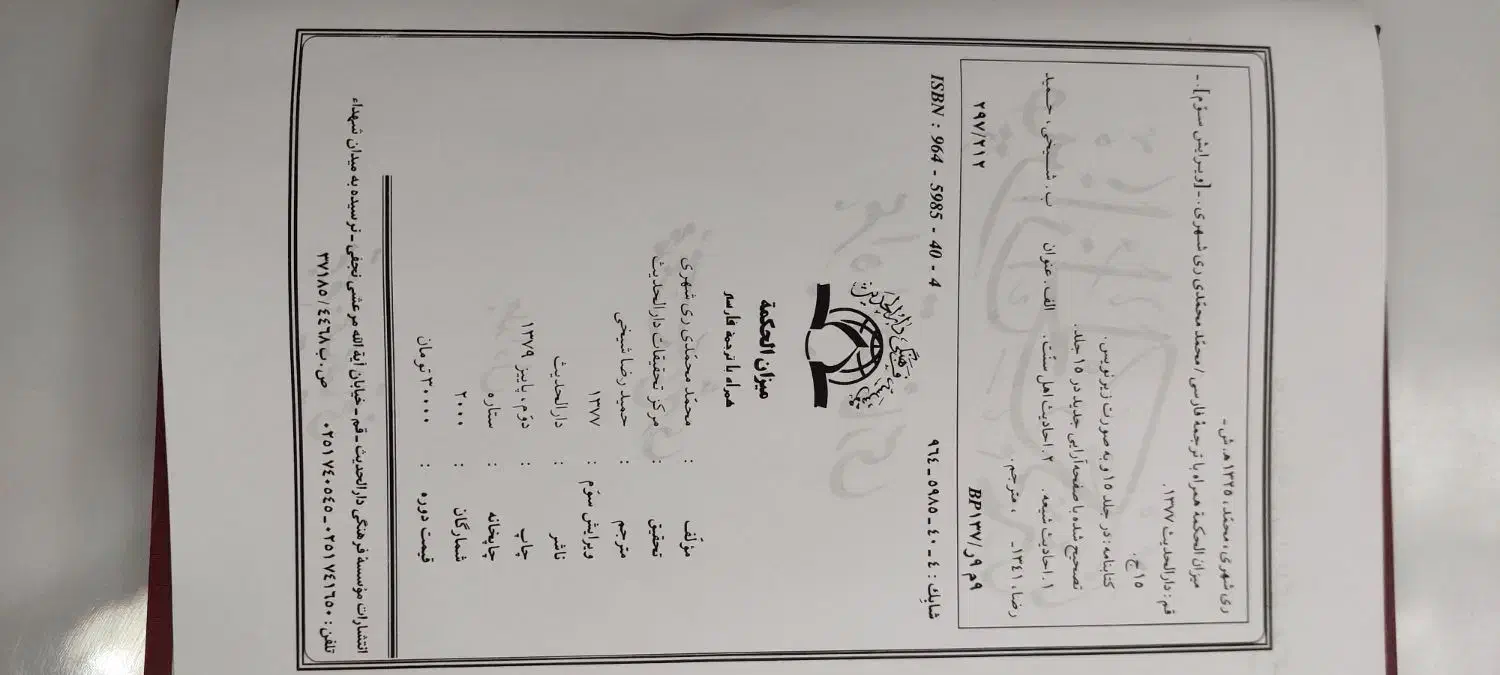 ری شهری، محمّد، ۱۳۲۵ ه‍. ش -
میزان الحکمة همراه با ترجمهٔ فارسی / محمّد محمّدی ری شهری. - [ویـرایش سـوّم]. -
قم: دارالحدیث ۱۳۷۷.
۱۵ ج.
کتابنامه: در جلد ۱۵ و به صورت زیرنویس.
تصحیح شده با صفحه‌آرایی جدید در ۱۵ جلد.
۱. احادیث شیعه. ۲. احادیث اهل سنّت. الف. عنوان ب. شـیخی، حـمید
رضا، ۱۳۴۱- ، مترجم.
۹م ۹ر/BP۱۳۷ ۲۹۷/۲۱۲
شابك : ٤ - ٤٠ - ٥٩٨٥ - ٩٦٤ ISBN : 964 - 5985 - 40 - 4
میزان الحکمة
همراه با ترجمهٔ فارسی
مؤلّف : محمّد محمّدی ری شهری
تحقیق : مرکز تحقیقات دارالحدیث
مترجم : حمید رضا شیخی
ویرایش سوّم : ۱۳۷۷
ناشر : دارالحدیث
چاپ : دوّم، پاییز ۱۳۷۹
چاپخانه : ستاره
شمارگان : ۲۰۰۰
قیمت دوره : ۳۰۰۰۰ تومان
انتشارات مؤسسهٔ فرهنگی دارالحدیث ـ قم ـ خیابان آیة الله مرعشی نجفی ـ نرسیده به میدان شهداء
تلفن: ۰۲۵۱ ۷۴۱۶۵۰ ـ ۰۲۵۱ ۷۴۰۵۴۵ ص. ب ۳۷۱۸۵/۴۴۶۸